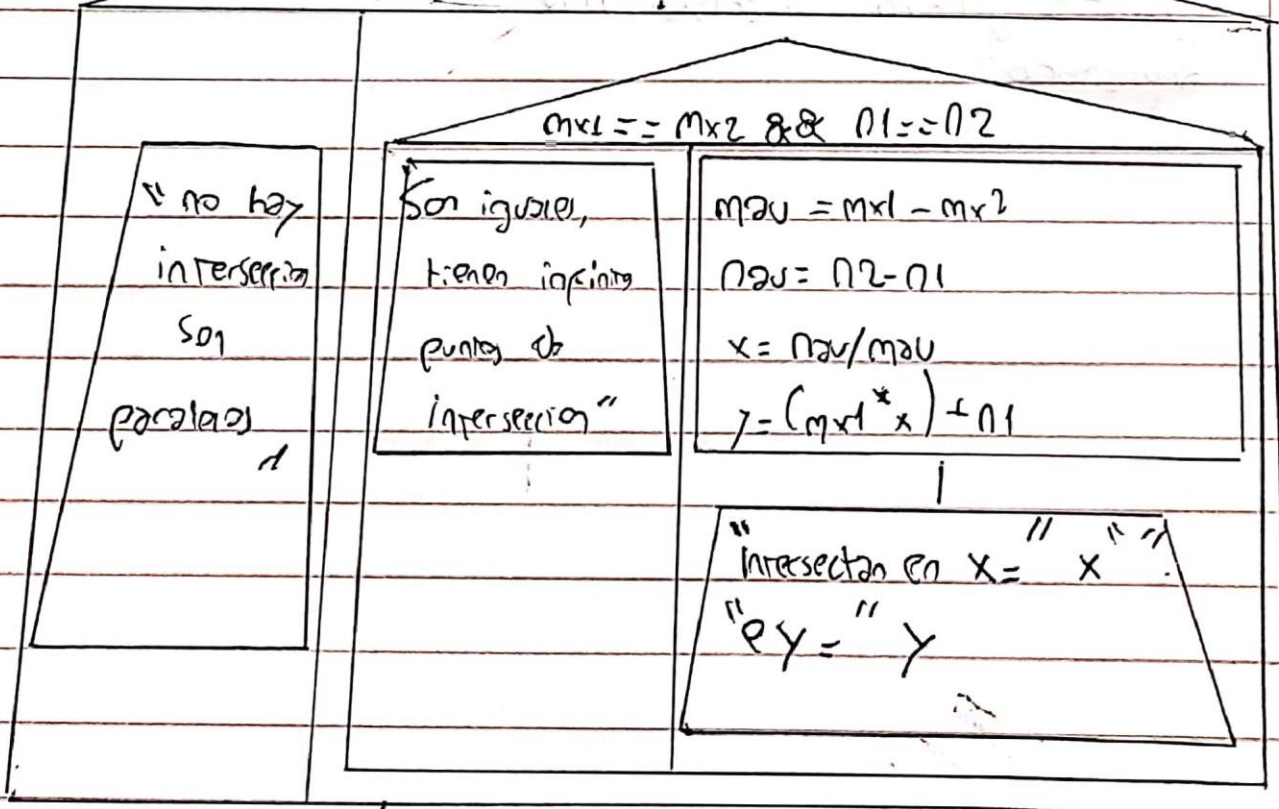 mx1 == mx2 && n1 == n2
"no hay
interseccion
son
paralelas
"
"Son iguales,
tienen infinitos
puntos de
interseccion"
mau = mx1 - mx2
nau = n2-n1
x = nau/mau
y = (mx1*x) + n1
"Intersectan en x=" x " "
"e y=" y